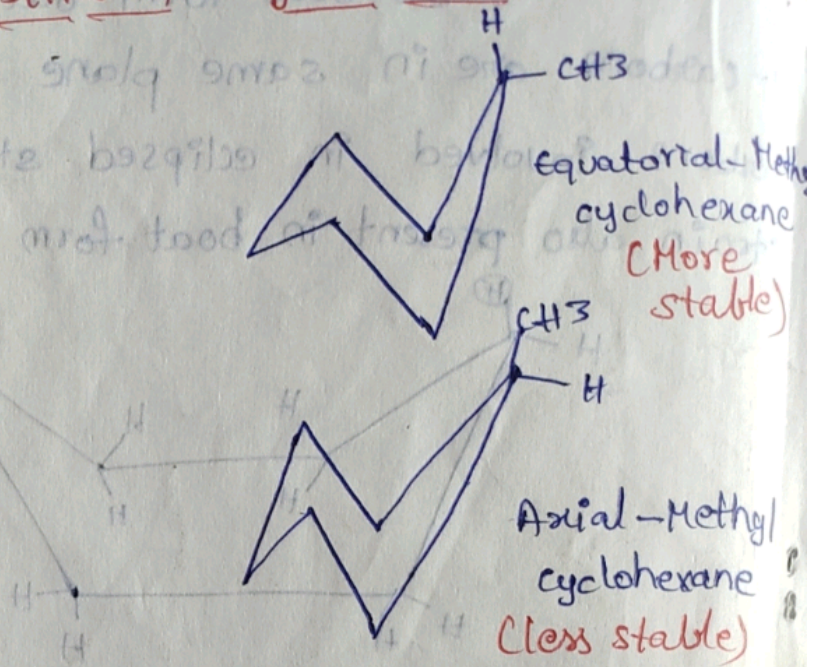 H
CH3
Equatorial-Methy
cyclohexane
(More
stable)
CH3
H
Axial-Methyl
cyclohexane
(less stable)